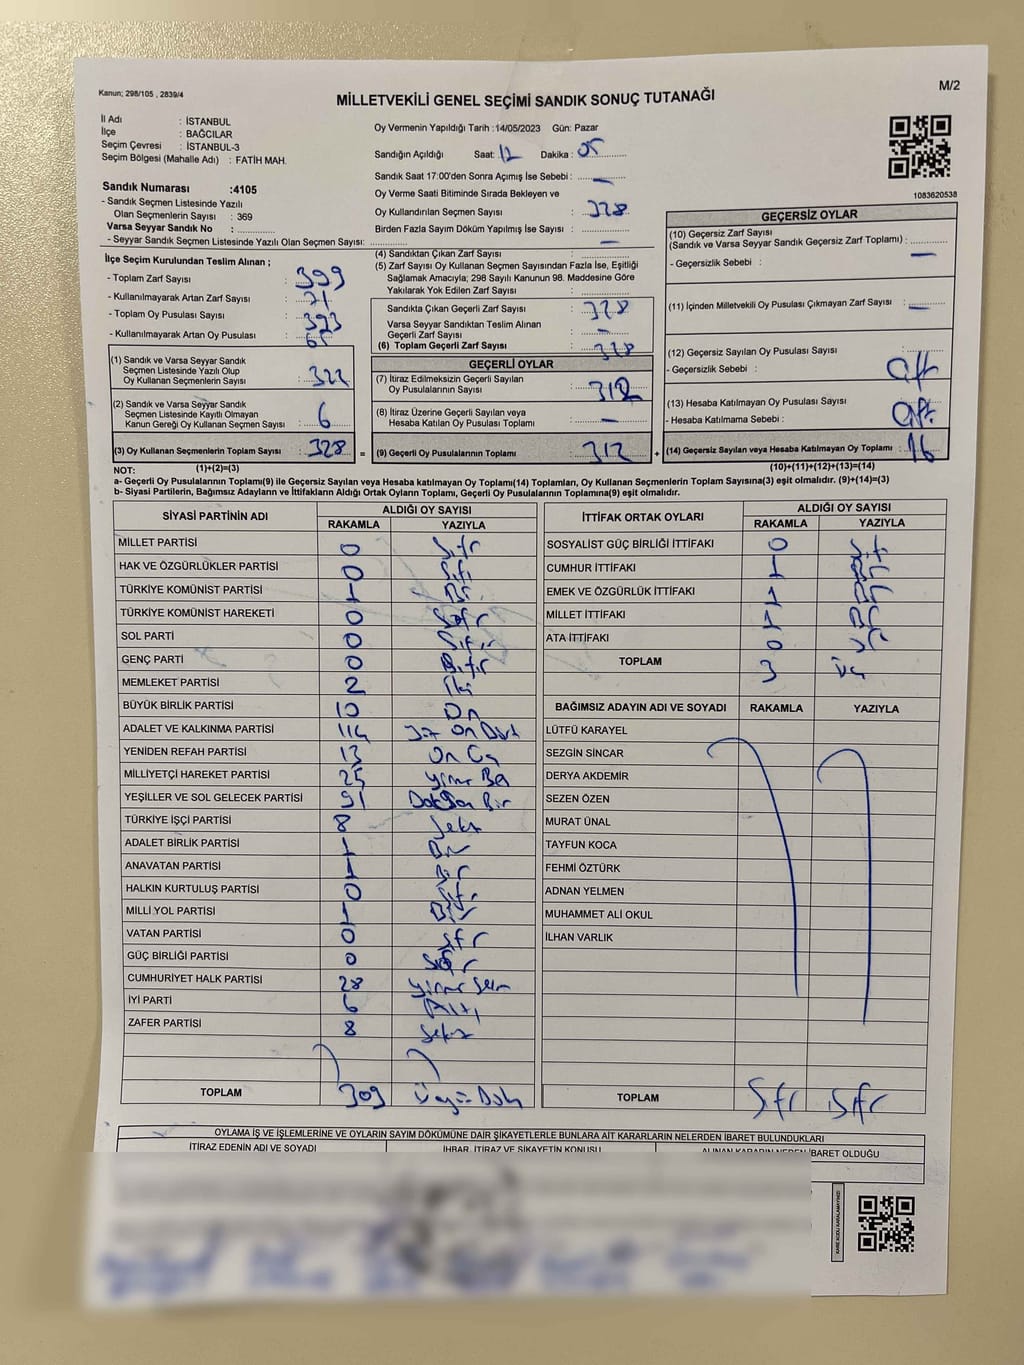 Kanun; 298/105 , 2839/4
M/2
MİLLETVEKİLİ GENEL SEÇİMİ SANDIK SONUÇ TUTANAĞI
İl Adı : İSTANBUL
İlçe : BAĞCILAR
Seçim Çevresi : İSTANBUL-3
Seçim Bölgesi (Mahalle Adı) : FATİH MAH.
Oy Vermenin Yapıldığı Tarih :14/05/2023 Gün: Pazar
Sandığın Açıldığı Saat: 12 Dakika : 05
Sandık Saat 17:00'den Sonra Açımış İse Sebebi : —
Oy Verme Saati Bitiminde Sırada Bekleyen ve
Oy Kullandırılan Seçmen Sayısı : 328
Birden Fazla Sayım Döküm Yapılmış İse Sayısı : —
1083620538
Sandık Numarası :4105
- Sandık Seçmen Listesinde Yazılı
Olan Seçmenlerin Sayısı : 369
Varsa Seyyar Sandık No :
- Seyyar Sandık Seçmen Listesinde Yazılı Olan Seçmen Sayısı:
İlçe Seçim Kurulundan Teslim Alınan ;
- Toplam Zarf Sayısı : 399
- Kullanılmayarak Artan Zarf Sayısı : 71
- Toplam Oy Pusulası Sayısı : 393
- Kullanılmayarak Artan Oy Pusulası : 65
(1) Sandık ve Varsa Seyyar Sandık
Seçmen Listesinde Yazılı Olup
Oy Kullanan Seçmenlerin Sayısı : 322
(2) Sandık ve Varsa Seyyar Sandık
Seçmen Listesinde Kayıtlı Olmayan
Kanun Gereği Oy Kullanan Seçmen Sayısı : 6
(3) Oy Kullanan Seçmenlerin Toplam Sayısı : 328
(4) Sandıktan Çıkan Zarf Sayısı :
(5) Zarf Sayısı Oy Kullanan Seçmen Sayısından Fazla İse, Eşitliği
Sağlamak Amacıyla; 298 Sayılı Kanunun 98. Maddesine Göre
Yakılarak Yok Edilen Zarf Sayısı :
Sandıkta Çıkan Geçerli Zarf Sayısı : 328
Varsa Seyyar Sandıktan Teslim Alınan
Geçerli Zarf Sayısı : —
(6) Toplam Geçerli Zarf Sayısı : 328
GEÇERLİ OYLAR
(7) İtiraz Edilmeksizin Geçerli Sayılan
Oy Pusulalarının Sayısı : 312
(8) İtiraz Üzerine Geçerli Sayılan veya
Hesaba Katılan Oy Pusulası Toplamı : —
= (9) Geçerli Oy Pusulalarının Toplamı : 312
GEÇERSİZ OYLAR
(10) Geçersiz Zarf Sayısı
(Sandık ve Varsa Seyyar Sandık Geçersiz Zarf Toplamı) : —
- Geçersizlik Sebebi :
(11) İçinden Milletvekili Oy Pusulası Çıkmayan Zarf Sayısı : —
(12) Geçersiz Sayılan Oy Pusulası Sayısı
- Geçersizlik Sebebi :
(13) Hesaba Katılmayan Oy Pusulası Sayısı
- Hesaba Katılmama Sebebi :
+ (14) Geçersiz Sayılan veya Hesaba Katılmayan Oy Toplamı : 16
NOT: (1)+(2)=(3) (10)+(11)+(12)+(13)=(14)
a- Geçerli Oy Pusulasının Toplamı(9) ile Geçersiz Sayılan veya Hesaba katılmayan Oy Toplamı(14) Toplamları, Oy Kullanan Seçmenlerin Toplam Sayısına(3) eşit olmalıdır. (9)+(14)=(3)
b- Siyasi Partilerin, Bağımsız Adayların ve İttifakların Aldığı Ortak Oyların Toplamı, Geçerli Oy Pusulalarının Toplamına(9) eşit olmalıdır.
SİYASİ PARTİNİN ADI ALDIĞI OY SAYISI
RAKAMLA YAZIYLA
MİLLET PARTİSİ 0 Sıfır
HAK VE ÖZGÜRLÜKLER PARTİSİ 0 Sıfır
TÜRKİYE KOMÜNİST PARTİSİ 1 Bir
TÜRKİYE KOMÜNİST HAREKETİ 0 Sıfır
SOL PARTİ 0 Sıfır
GENÇ PARTİ 0 Sıfır
MEMLEKET PARTİSİ 2 İki
BÜYÜK BİRLİK PARTİSİ 10 On
ADALET VE KALKINMA PARTİSİ 114 Yüz On Dört
YENİDEN REFAH PARTİSİ 13 On Üç
MİLLİYETÇİ HAREKET PARTİSİ 25 Yirmi Beş
YEŞİLLER VE SOL GELECEK PARTİSİ 91 Doksan Bir
TÜRKİYE İŞÇİ PARTİSİ 8 Sekiz
ADALET BİRLİK PARTİSİ 1 Bir
ANAVATAN PARTİSİ 1 Bir
HALKIN KURTULUŞ PARTİSİ 0 Sıfır
MİLLİ YOL PARTİSİ 1 Bir
VATAN PARTİSİ 0 Sıfır
GÜÇ BİRLİĞİ PARTİSİ 0 Sıfır
CUMHURİYET HALK PARTİSİ 28 Yirmi Sekiz
İYİ PARTİ 6 Altı
ZAFER PARTİSİ 8 Sekiz
TOPLAM 309 Üçyüz Dokuz
İTTİFAK ORTAK OYLARI ALDIĞI OY SAYISI
RAKAMLA YAZIYLA
SOSYALİST GÜÇ BİRLİĞİ İTTİFAKI 0 Sıfır
CUMHUR İTTİFAKI 1 Bir
EMEK VE ÖZGÜRLÜK İTTİFAKI 1 Bir
MİLLET İTTİFAKI 1 Bir
ATA İTTİFAKI 0 Sıfır
TOPLAM 3 Üç
BAĞIMSIZ ADAYIN ADI VE SOYADI RAKAMLA YAZIYLA
LÜTFÜ KARAYEL
SEZGİN SİNCAR
DERYA AKDEMİR
SEZEN ÖZEN
MURAT ÜNAL
TAYFUN KOCA
FEHMİ ÖZTÜRK
ADNAN YELMEN
MUHAMMET ALİ OKUL
İLHAN VARLIK
TOPLAM Sıfır Sıfır
OYLAMA İŞ VE İŞLEMLERİNE VE OYLARIN SAYIM DÖKÜMÜNE DAİR ŞİKAYETLERLE BUNLARA AİT KARARLARIN NELERDEN İBARET BULUNDUKLARI
İTİRAZ EDENİN ADI VE SOYADI İHBAR, İTİRAZ VE ŞİKAYETİN KONUSU ALINAN KARARIN NEDEN İBARET OLDUĞU